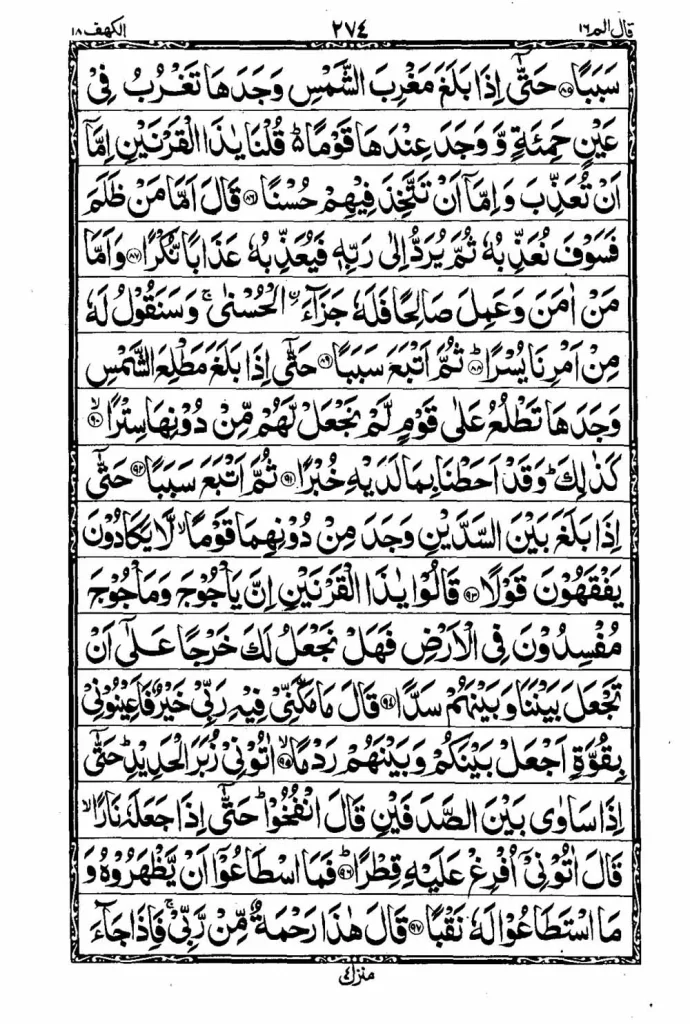 قال الم ١٦ ٢٧٤ الكهف ١٨
سَبَبًا ﴿٨٥﴾ حَتّٰۤى اِذَا بَلَغَ مَغْرِبَ الشَّمْسِ وَجَدَهَا تَغْرُبُ فِىْ
عَيْنٍ حَمِئَةٍ وَّ وَجَدَ عِنْدَهَا قَوْمًا ۬ؕ قُلْنَا يٰذَا الْقَرْنَيْنِ اِمَّاۤ
اَنْ تُعَذِّبَ وَ اِمَّاۤ اَنْ تَتَّخِذَ فِيْهِمْ حُسْنًا ﴿٨٦﴾ قَالَ اَمَّا مَنْ ظَلَمَ
فَسَوْفَ نُعَذِّبُهٗ ثُمَّ يُرَدُّ اِلٰى رَبِّهٖ فَيُعَذِّبُهٗ عَذَابًا نُّكْرًا ﴿٨٧﴾ وَ اَمَّا
مَنْ اٰمَنَ وَ عَمِلَ صَالِحًا فَلَهٗ جَزَآءَ ۨ الْحُسْنٰى ۚ وَ سَنَقُوْلُ لَهٗ
مِنْ اَمْرِنَا يُسْرًا ؕ﴿٨٨﴾ ثُمَّ اَتْبَعَ سَبَبًا ﴿٨٩﴾ حَتّٰۤى اِذَا بَلَغَ مَطْلِعَ الشَّمْسِ
وَجَدَهَا تَطْلُعُ عَلٰى قَوْمٍ لَّمْ نَجْعَلْ لَّهُمْ مِّنْ دُوْنِهَا سِتْرًا ۙ﴿٩٠﴾
كَذٰلِكَ ؕ وَ قَدْ اَحَطْنَا بِمَا لَدَيْهِ خُبْرًا ﴿٩١﴾ ثُمَّ اَتْبَعَ سَبَبًا ﴿٩٢﴾ حَتّٰۤى
اِذَا بَلَغَ بَيْنَ السَّدَّيْنِ وَجَدَ مِنْ دُوْنِهِمَا قَوْمًا ۙ لَّا يَكَادُوْنَ
يَفْقَهُوْنَ قَوْلًا ﴿٩٣﴾ قَالُوْا يٰذَا الْقَرْنَيْنِ اِنَّ يَاْجُوْجَ وَ مَاْجُوْجَ
مُفْسِدُوْنَ فِى الْاَرْضِ فَهَلْ نَجْعَلُ لَكَ خَرْجًا عَلٰۤى اَنْ
تَجْعَلَ بَيْنَنَا وَ بَيْنَهُمْ سَدًّا ﴿٩٤﴾ قَالَ مَا مَكَّنِّىْ فِيْهِ رَبِّىْ خَيْرٌ فَاَعِيْنُوْنِىْ
بِقُوَّةٍ اَجْعَلْ بَيْنَكُمْ وَ بَيْنَهُمْ رَدْمًا ۙ﴿٩٥﴾ اٰتُوْنِىْ زُبَرَ الْحَدِيْدِ ؕ حَتّٰۤى
اِذَا سَاوٰى بَيْنَ الصَّدَفَيْنِ قَالَ انْفُخُوْا ؕ حَتّٰۤى اِذَا جَعَلَهٗ نَارًا ۙ
قَالَ اٰتُوْنِىْۤ اُفْرِغْ عَلَيْهِ قِطْرًا ؕ﴿٩٦﴾ فَمَا اسْطَاعُوْۤا اَنْ يَّظْهَرُوْهُ وَ
مَا اسْتَطَاعُوْا لَهٗ نَقْبًا ﴿٩٧﴾ قَالَ هٰذَا رَحْمَةٌ مِّنْ رَّبِّىْ ۚ فَاِذَا جَآءَ
منزل ٤